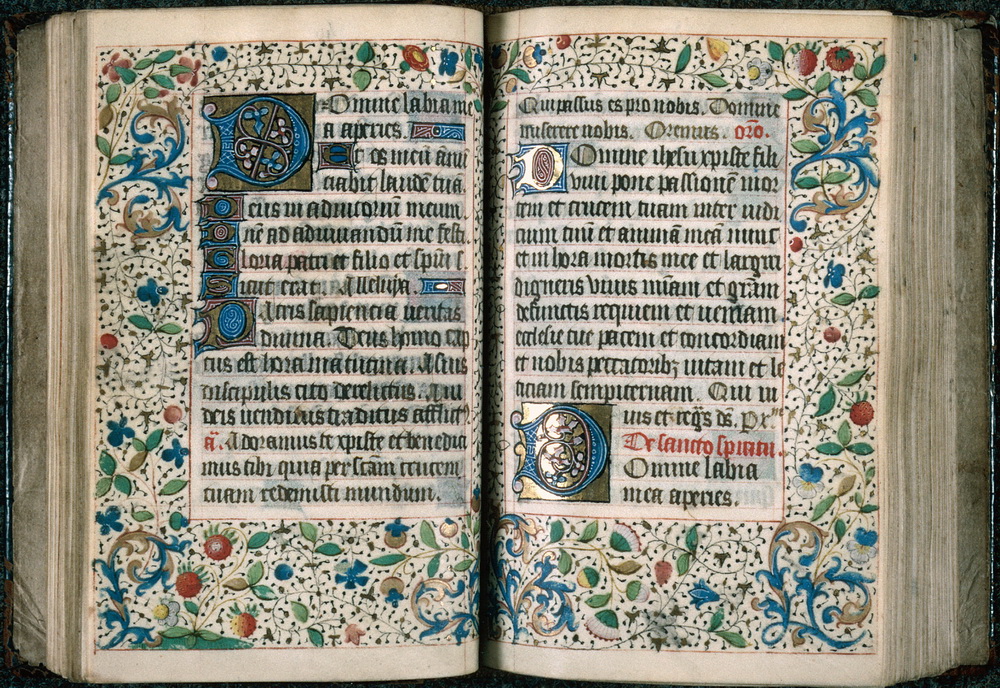 Domine labia me
a aperies.
Et os meū ānū
ciabit laudē tuā.
Deus in adiutoriū meum.
Dnē ad adiuvandū me festi.
Gloria patri et filio et spūi s.
Sicut erat. Alleluya.
Patris sapiencia veritas
divina. Deus homo cap
tus est hora matutina. A suis
discipulis cito derelictus. A iu
deis venditus traditus afflict9
ā. Adoramus te xpiste et benedici
mus tibi quia per scām crucem
tuam redemisti mundum.
Qui passus es pro nobis. Domine
miserere nobis. Oremus. oro.
Domine ihesu xpiste fili
dei vivi pone passionē mor
tem et crucem tuam inter iudi
cium tuū et animā meā nunc
et in hora mortis mee et largiri
digneris vivis miām et grām
defunctis requiem et veniam
ecclesie tue pacem et concordiam
et nobis peccatoribꝫ vitam et le
ticiam sempiternam. Qui vi
vis et regꝫs ds. Px
De sancto spiritu.
Domine labia
mea aperies.